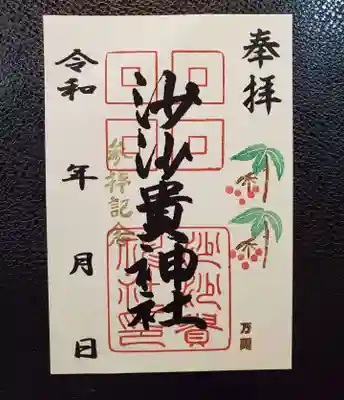 奉拝
万両
沙沙貴神社
参拝記念
沙沙貴
神社印
令和　年　月　日